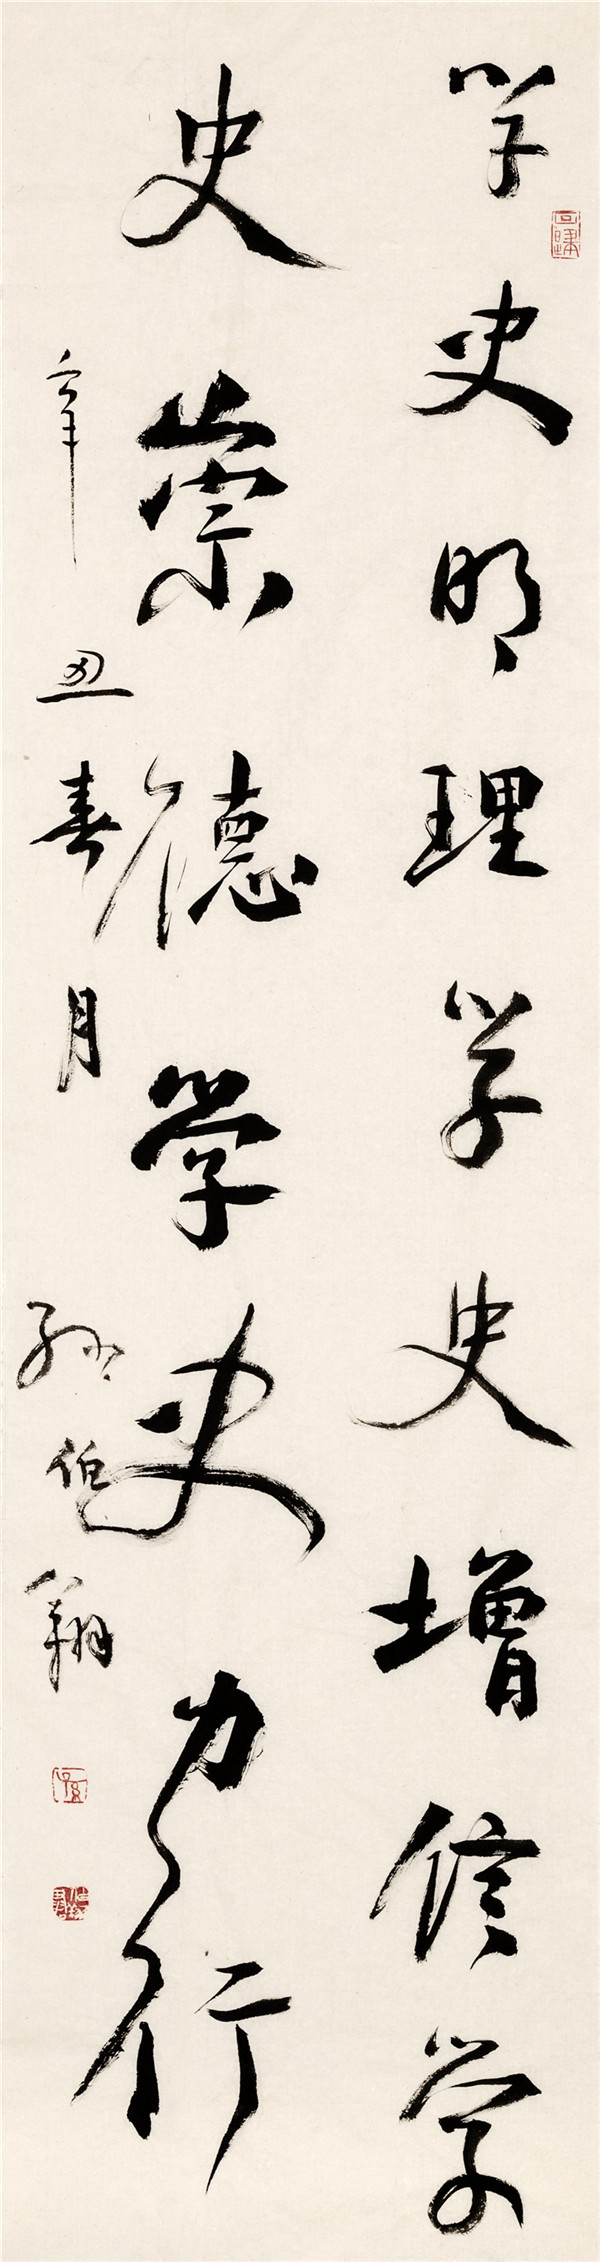 学史明理学史增信学
史崇德学史力行
辛丑春月 孙伯翔